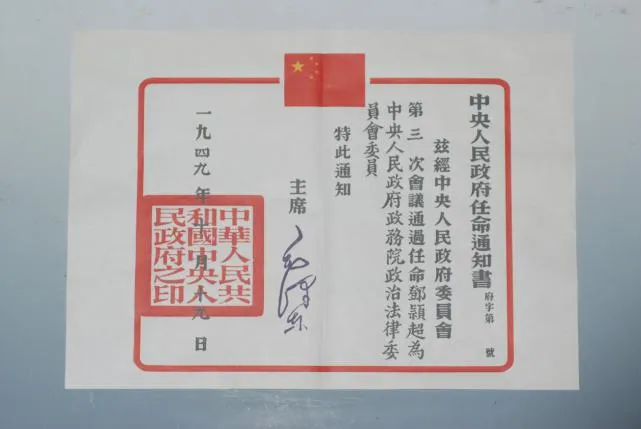 中央人民政府任命通知書
府字第 號
茲經中央人民政府委員會
第三次會議通過任命鄧穎超為
中央人民政府政務院政治法律委
員會委員
特此通知
主席
毛澤东
一九四九年十月十九日
中華人民共
和國中央人
民政府之印